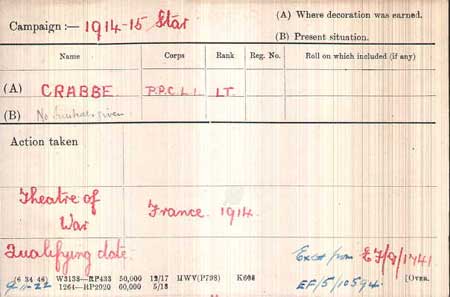 Campaign :— 1914-15 Star
(A) Where decoration was earned.
(B) Present situation.
Name Corps Rank Reg. No. Roll on which included (if any)
(A) CRABBE. P.P.C.L.I. LT.
(B) No Initials given
Action taken
Theatre of War France. 1914.
Qualifying date
Extct from E7/9/1741
EF/5/10594.
(6 34 46) W3138—RP433 50,000 12/17 HWV(P798) K608 [OVER.
1264—RP2020 60,000 5/18